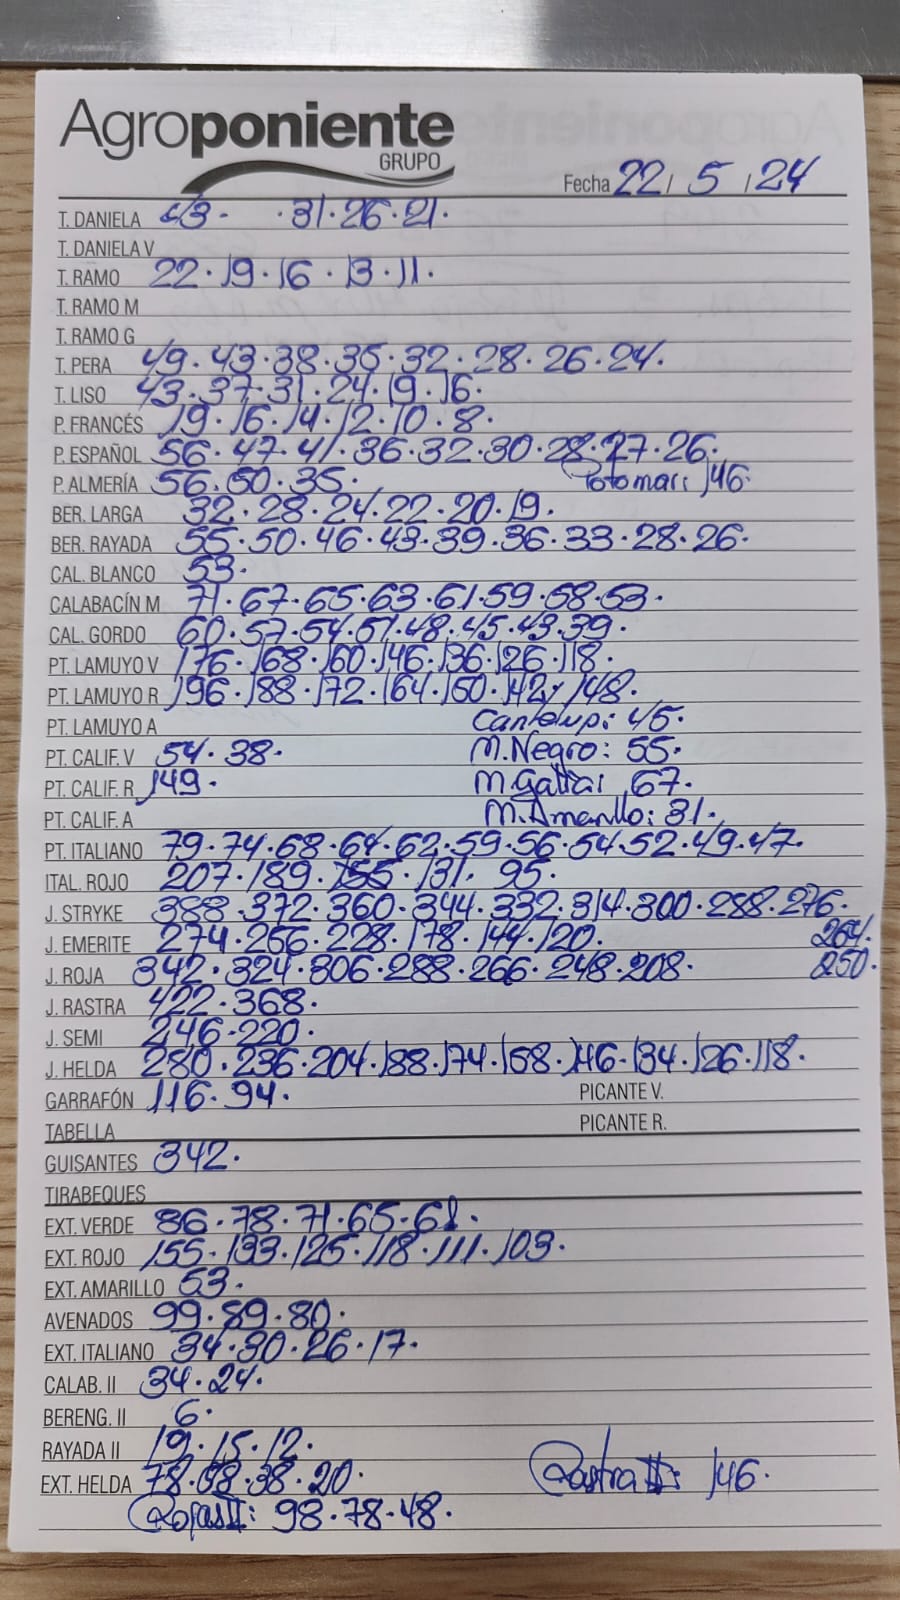 Agroponiente
GRUPO
Fecha 22 / 5 / 24
T. DANIELA 43. . 31. 26. 21.
T. DANIELA V
T. RAMO 22. 19. 16. 13. 11.
T. RAMO M
T. RAMO G
T. PERA 49. 43. 38. 35. 32. 28. 26. 24.
T. LISO 43. 37. 31. 24. 19. 16.
P. FRANCÉS 19. 16. 14. 12. 10. 8.
P. ESPAÑOL 56. 47. 41. 36. 32. 30. 28. 27. 26.
P. ALMERÍA 56. 50. 35. 146.
BER. LARGA 32. 28. 24. 22. 20. 19.
BER. RAYADA 55. 50. 46. 43. 39. 36. 33. 28. 26.
CAL. BLANCO 53.
CALABACÍN M 71. 67. 65. 63. 61. 59. 58. 53.
CAL. GORDO 60. 57. 54. 51. 48. 45. 43. 39.
PT. LAMUYO V 176. 168. 160. 146. 136. 126. 118.
PT. LAMUYO R 196. 188. 172. 164. 160. 142 y 148.
PT. LAMUYO A Cantelup: 45.
PT. CALIF. V 54. 38. M. Negro: 55.
PT. CALIF. R 149. M. Galia: 67.
PT. CALIF. A M. Amarillo: 31.
PT. ITALIANO 79. 74. 68. 64. 62. 59. 56. 54. 52. 49. 47.
ITAL. ROJO 207. 189. 155. 131. 95.
J. STRYKE 388. 372. 360. 344. 332. 314. 300. 288. 276.
J. EMERITE 274. 256. 228. 178. 144. 120. 264.
J. ROJA 342. 324. 306. 288. 266. 248. 208. 250.
J. RASTRA 422. 368.
J. SEMI 246. 220.
J. HELDA 280. 236. 204. 188. 174. 158. 146. 134. 126. 118.
GARRAFÓN 116. 94. PICANTE V.
TABELLA PICANTE R.
GUISANTES 342.
TIRABEQUES
EXT. VERDE 86. 78. 71. 65. 61.
EXT. ROJO 155. 133. 125. 118. 111. 103.
EXT. AMARILLO 53.
AVENADOS 99. 89. 80.
EXT. ITALIANO 34. 30. 26. 17.
CALAB. II 34. 24.
BERENG. II 6.
RAYADA II 19. 15. 12.
EXT. HELDA 78. 58. 38. 20. Rastra II: 146.
Rojas II: 98. 78. 48.